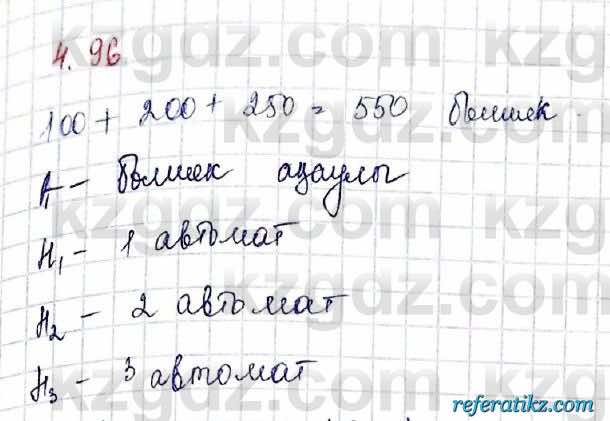 4.96
100 + 200 + 250 = 550 бөлшек.
A — бөлшек ақаулы
H₁ — 1 автомат
H₂ — 2 автомат
H₃ — 3 автомат
kzgdz.com
referatikz.com